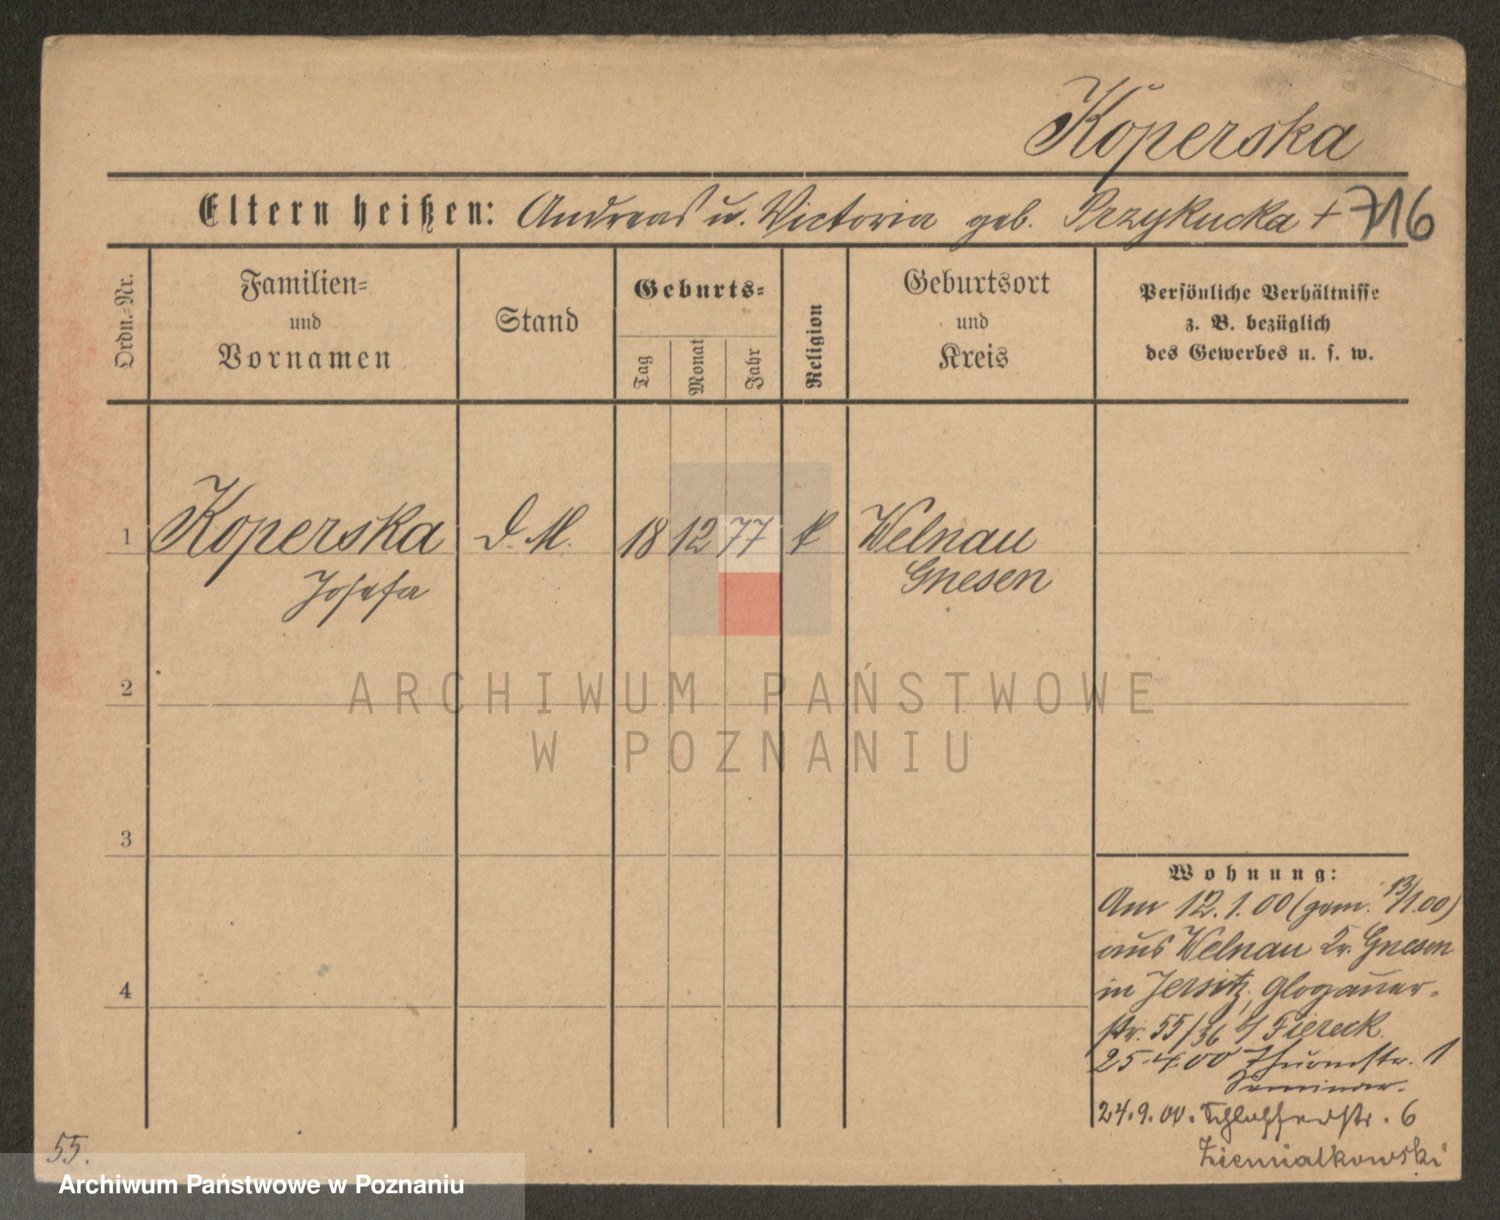 Koperska
Eltern heißen: Andreas u. Victoria geb. Przykucka + 716
Ordn.-Nr.
Familien-
und
Vornamen
Stand
Geburts-
Tag
Monat
Jahr
Religion
Geburtsort
und
Kreis
Persönliche Verhältnisse
z. B. bezüglich
des Gewerbes u. s. w.
1 Koperska D. M. 18 12 77 k Welnau
Josefa Gnesen
ARCHIWUM PAŃSTWOWE
W POZNANIU
2
3
4
Wohnung:
Am 12.1.00 (gem. 13/1.00)
aus Welnau Kr. Gnesen
in Jersitz, Glogauer-
str. 55/56 b/ Fiereck
25.4.00 Thurmstr. 1
Seminar.
24.9.00. Schlosserstr. 6
Ziemialkowski
55.
Archiwum Państwowe w Poznaniu